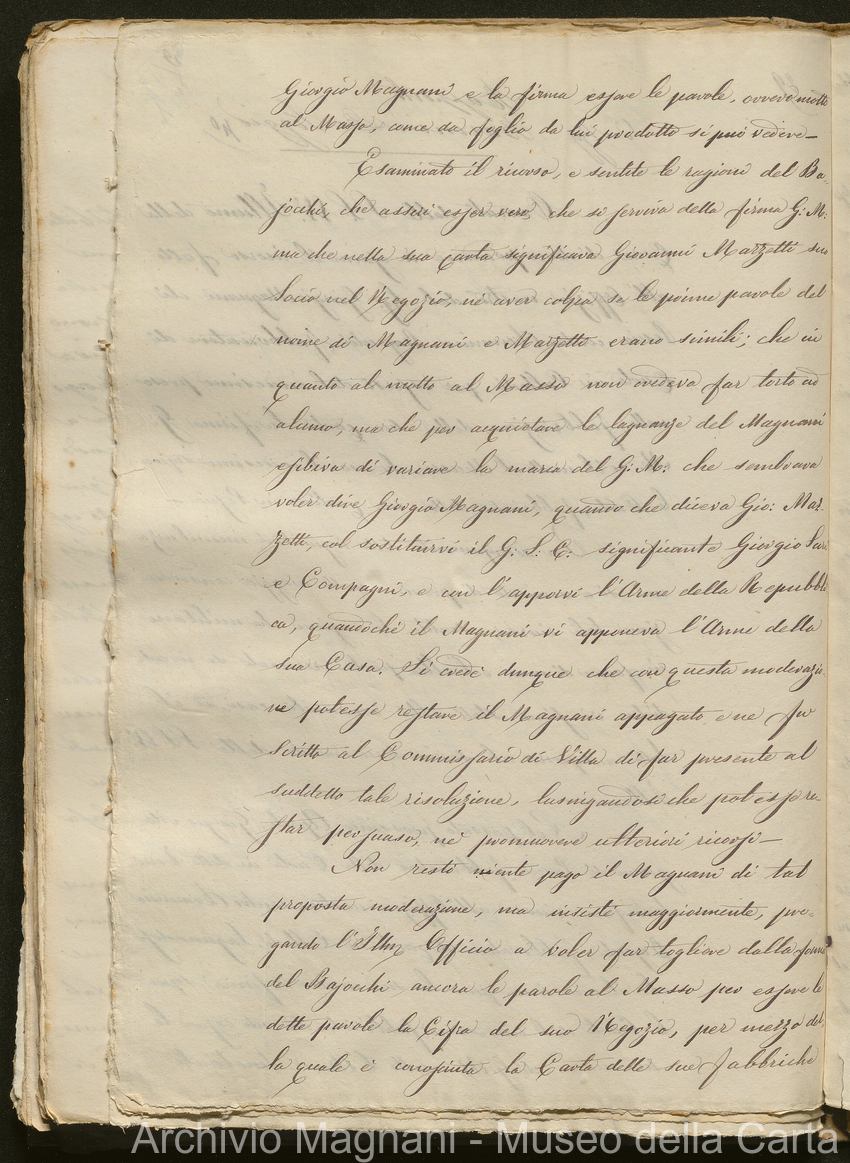 Giorgio Magnani e la firma essere le parole, ovvero motto
al Masso, come da foglio da lui prodotto si può vedere—
Esaminato il ricorso, e sentite le ragioni del Ba-
jocchi, che asserì esser vero, che si serviva della firma G: M:
ma che nella sua carta significava Giovanni Marzetti suo
Socio nel Negozio, nè aver colpa se le prime parole del
nome di Magnani e Marzetti erano simili; che in
quanto al motto al Masso non credeva far torto ad
alcuno, ma che per acquietare le lagnanze del Magnani
esibiva di variare la marca del G: M: che sembrava
voler dire Giorgio Magnani, quando che diceva Gio: Mar-
zetti, col sostituirvi il G: S: C: significante Giorgio
e Compagni, e con l'apporvi l'Arme della Repubbli
ca, quandochè il Magnani vi apponeva l'Arme della
sua Casa. Si credè dunque che con questa moderazio-
ne potesse restare il Magnani appagato e ne fu
scritto al Commissario di Villa di far presente al
suddetto tale risoluzione, lusingandosi che potesse re-
star persuaso, nè promuovere ulteriori ricorsi—
Non restò niente pago il Magnani di tal
proposta moderazione, ma insistè maggiormente, pre-
gando l'Illmo Officio a voler far togliere dalla forma
del Bajocchi ancora le parole al Masso per essere le
dette parole la Cifra del suo Negozio, per mezzo del
la quale è conosciuta la Carta delle sue fabbriche
Archivio Magnani - Museo della Carta